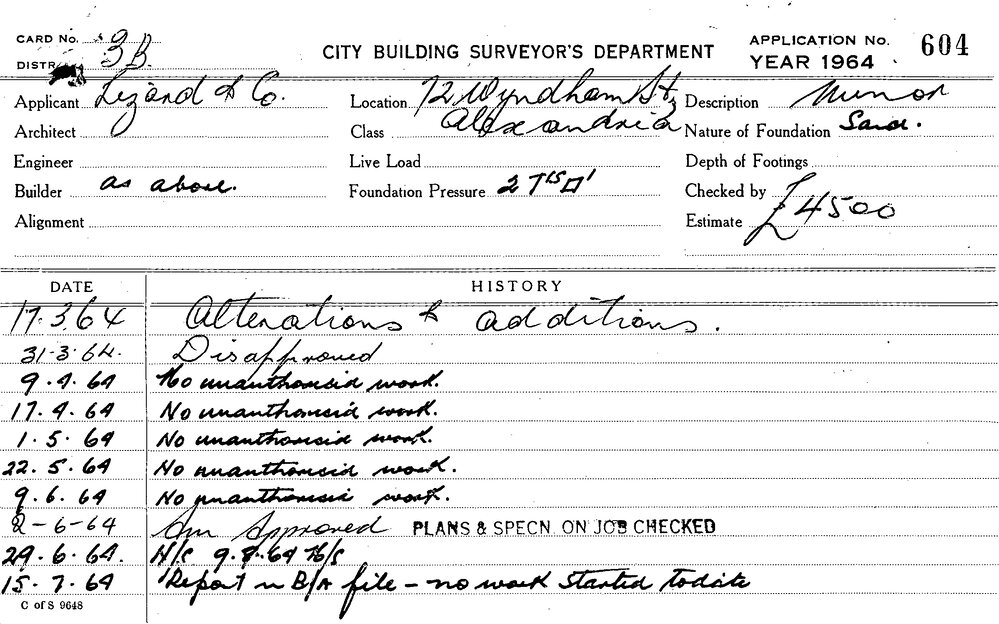 CARD No. 3B
CITY BUILDING SURVEYOR'S DEPARTMENT
APPLICATION No. 604
YEAR 1964
Applicant & Co. Location 72 Wyndham St, Description Minor
Architect Class Alexandria Nature of Foundation Sand.
Engineer Live Load Depth of Footings
Builder as above. Foundation Pressure 2 Checked by
Alignment Estimate £4500
DATE HISTORY
17.3.64 Alterations & additions.
31-3-64. Disapproved
9.4.64 No unauthorised work.
17.4.64 No unauthorised work.
1.5.64 No unauthorised work.
22.5.64 No unauthorised work.
9.6.64 No unauthorised work.
-6-64 Approved PLANS & SPECN. ON JOB CHECKED
29.6.64. N/S N/S
15.7.64 Report in B/A file - no work started to date
C of S 9648